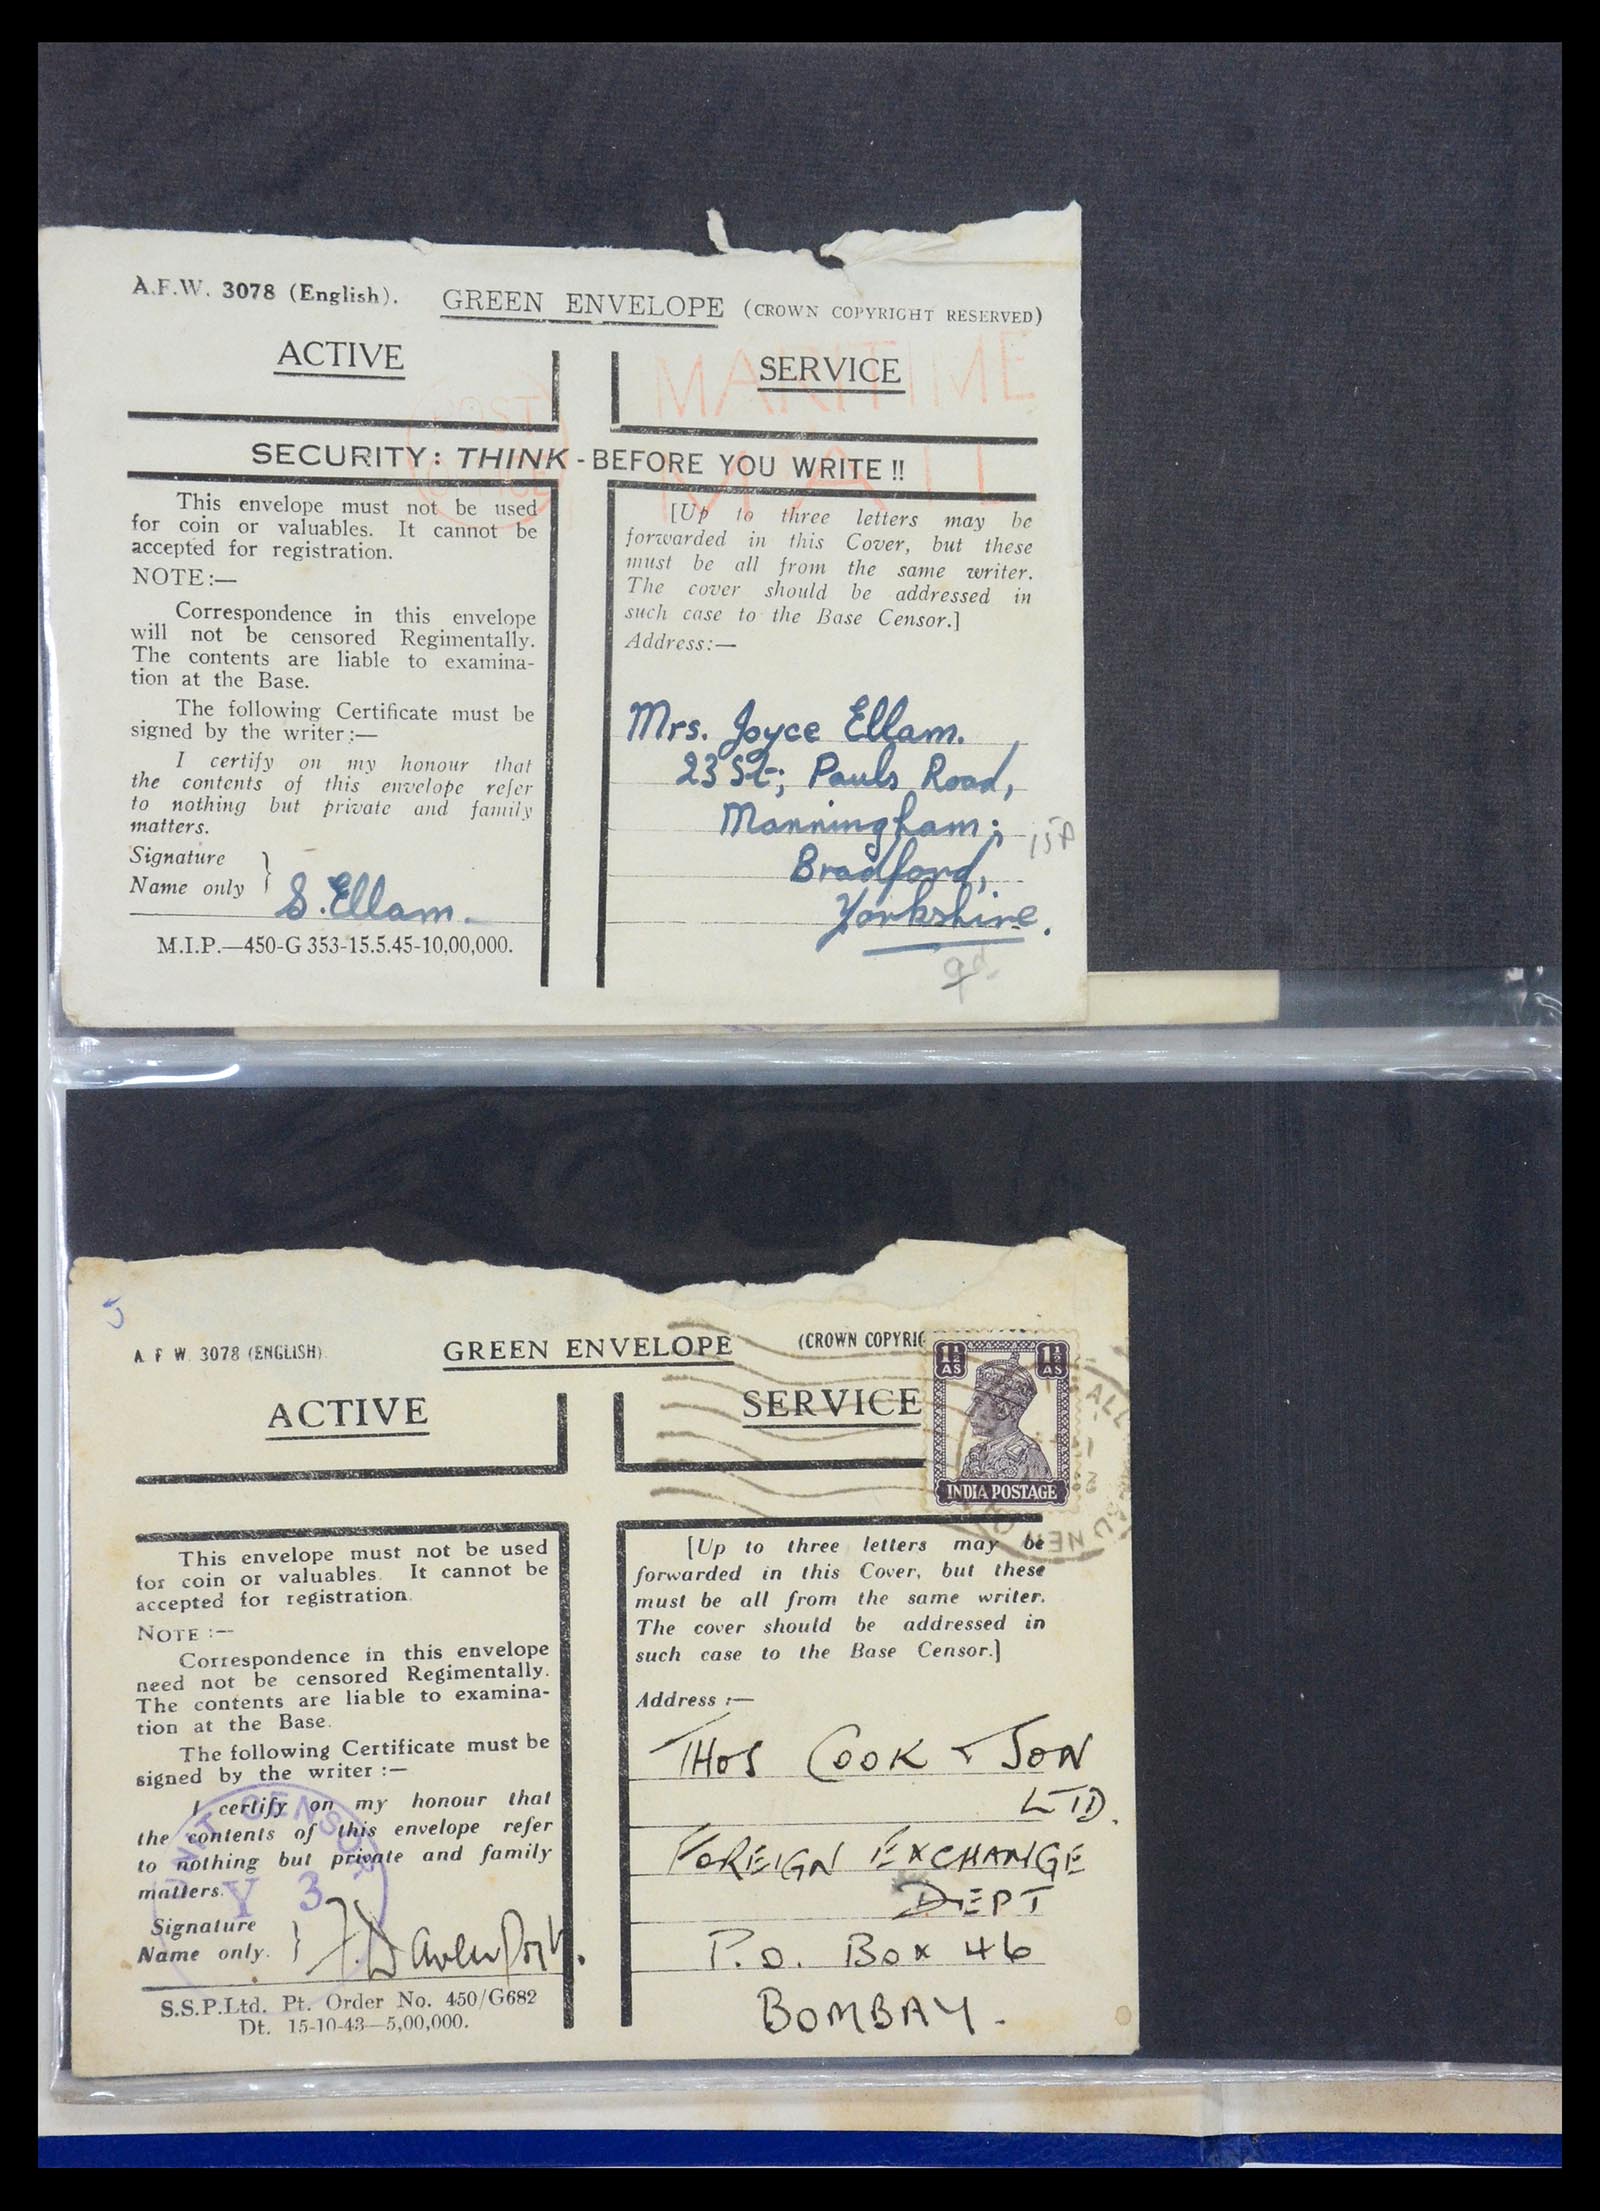 A.F.W. 3078 (English). GREEN ENVELOPE (CROWN COPYRIGHT RESERVED)
ACTIVE SERVICE
POST OFFICE
MARITIME MAIL
SECURITY: THINK - BEFORE YOU WRITE !!
This envelope must not be used
for coin or valuables. It cannot be
accepted for registration.
NOTE:—
Correspondence in this envelope
will not be censored Regimentally.
The contents are liable to examina-
tion at the Base.
The following Certificate must be
signed by the writer:—
I certify on my honour that
the contents of this envelope refer
to nothing but private and family
matters.
Signature
Name only }
S. Ellam.
M.I.P.—450-G 353-15.5.45-10,00,000.
[Up to three letters may be
forwarded in this Cover, but these
must be all from the same writer.
The cover should be addressed in
such case to the Base Censor.]
Address:—
Mrs. Joyce Ellam.
23 St; Pauls Road,
Manningham;
Bradford,
Yorkshire.
9d
A F W 3078 (ENGLISH) GREEN ENVELOPE (CROWN COPYRIG
ACTIVE SERVICE
1½ AS 1½ AS
INDIA POSTAGE
This envelope must not be used
for coin or valuables. It cannot be
accepted for registration.
NOTE :—
Correspondence in this envelope
need not be censored Regimentally.
The contents are liable to examina-
tion at the Base.
The following Certificate must be
signed by the writer :—
I certify on my honour that
the contents of this envelope refer
to nothing but private and family
matters.
Signature
Name only. }
F. Davenport.
UNIT CENSOR
Y 3
S.S.P.Ltd. Pt. Order No. 450/G682
Dt. 15-10-43—5,00,000.
[Up to three letters may be
forwarded in this Cover, but these
must be all from the same writer.
The cover should be addressed in
such case to the Base Censor.]
Address :—
THOS COOK & SON
LTD.
FOREIGN EXCHANGE
DEPT
P.O. BOX 46
BOMBAY.